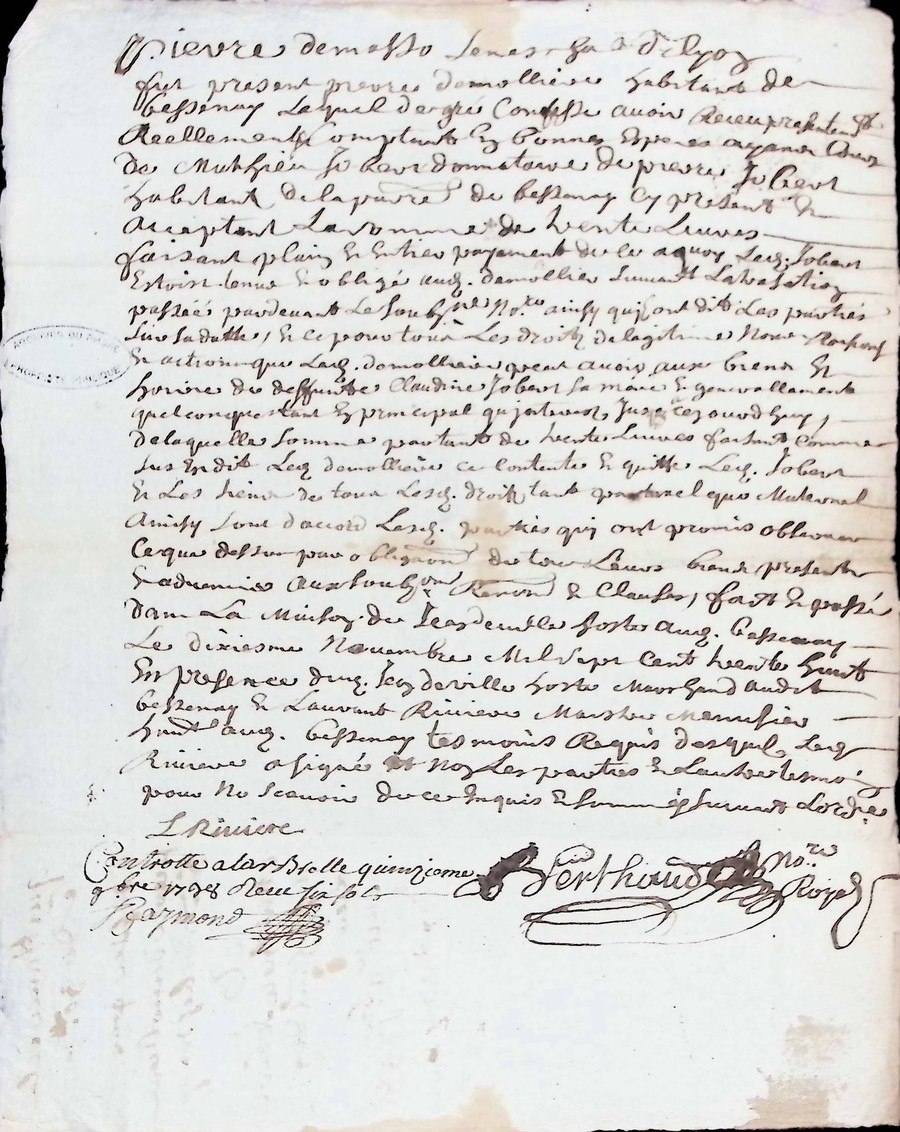 Pierre demasso Seneschal de Lyon
fut present pierre demolliere habitant de
bessenay Lequel de gre Confesse auoir Receu presentemt
Reellement Comptant En bonnes Especes ayant Cours
De Mathieu Jobert donnataire de pierre Jobert
habitant de la parre de bessenay Cy present &
acceptant La somme de trente Liures
faisant plain & Entier payement de ce aquoy Led. Jobert
Estoit tenu & obligé aud. demollier suiuant La
passée pardeuant Le soubsne Nore ainsy qu'ont dit Les parties
Sur sa datte, & ce pour tous Les droits de legitime
Et action que Led. demolliere peut auoir aux biens &
hoirie de deffunte Claudine Jobert sa mere & generallement
quelconques tant En principal qu'interests Jusqu'a ce Jourd'huy,
De laquelle somme partant de trente Liures faisant Comme
sus Est dit Led demolliere ce Contente & quitte Led. Jobert
& Les siens de tous Lesd. droits tant paternel que Maternel
Ainsy sont d'accord Lesd. parties qui ont promis obseruer
Ce que dessus par obligaon de tous Leurs biens presents
& aduenirs aux soubson Renon & Clauses, fait & passé
Dans La Maison de Jean deuille hoste aud. bessenay
Le dixiesme Nouembre Mil sept Cent trente huit
En presence dud. Jean deville hoste Marchand audit
bessenay & Laurant Riuiere Maistre Menusier
habtant aud. bessenay tesmoins Requis desquels Led
Riuiere a signé Et Non Les parties & L'autre tesmoin
pour Ne Scauoir de ce Enquis & sommés suiuant L'ordce
L Riuiere
Controlle a larBrelle quinzieme
9bre 1738 Receu six sols
Berthaud Nore
Royal
Raymond